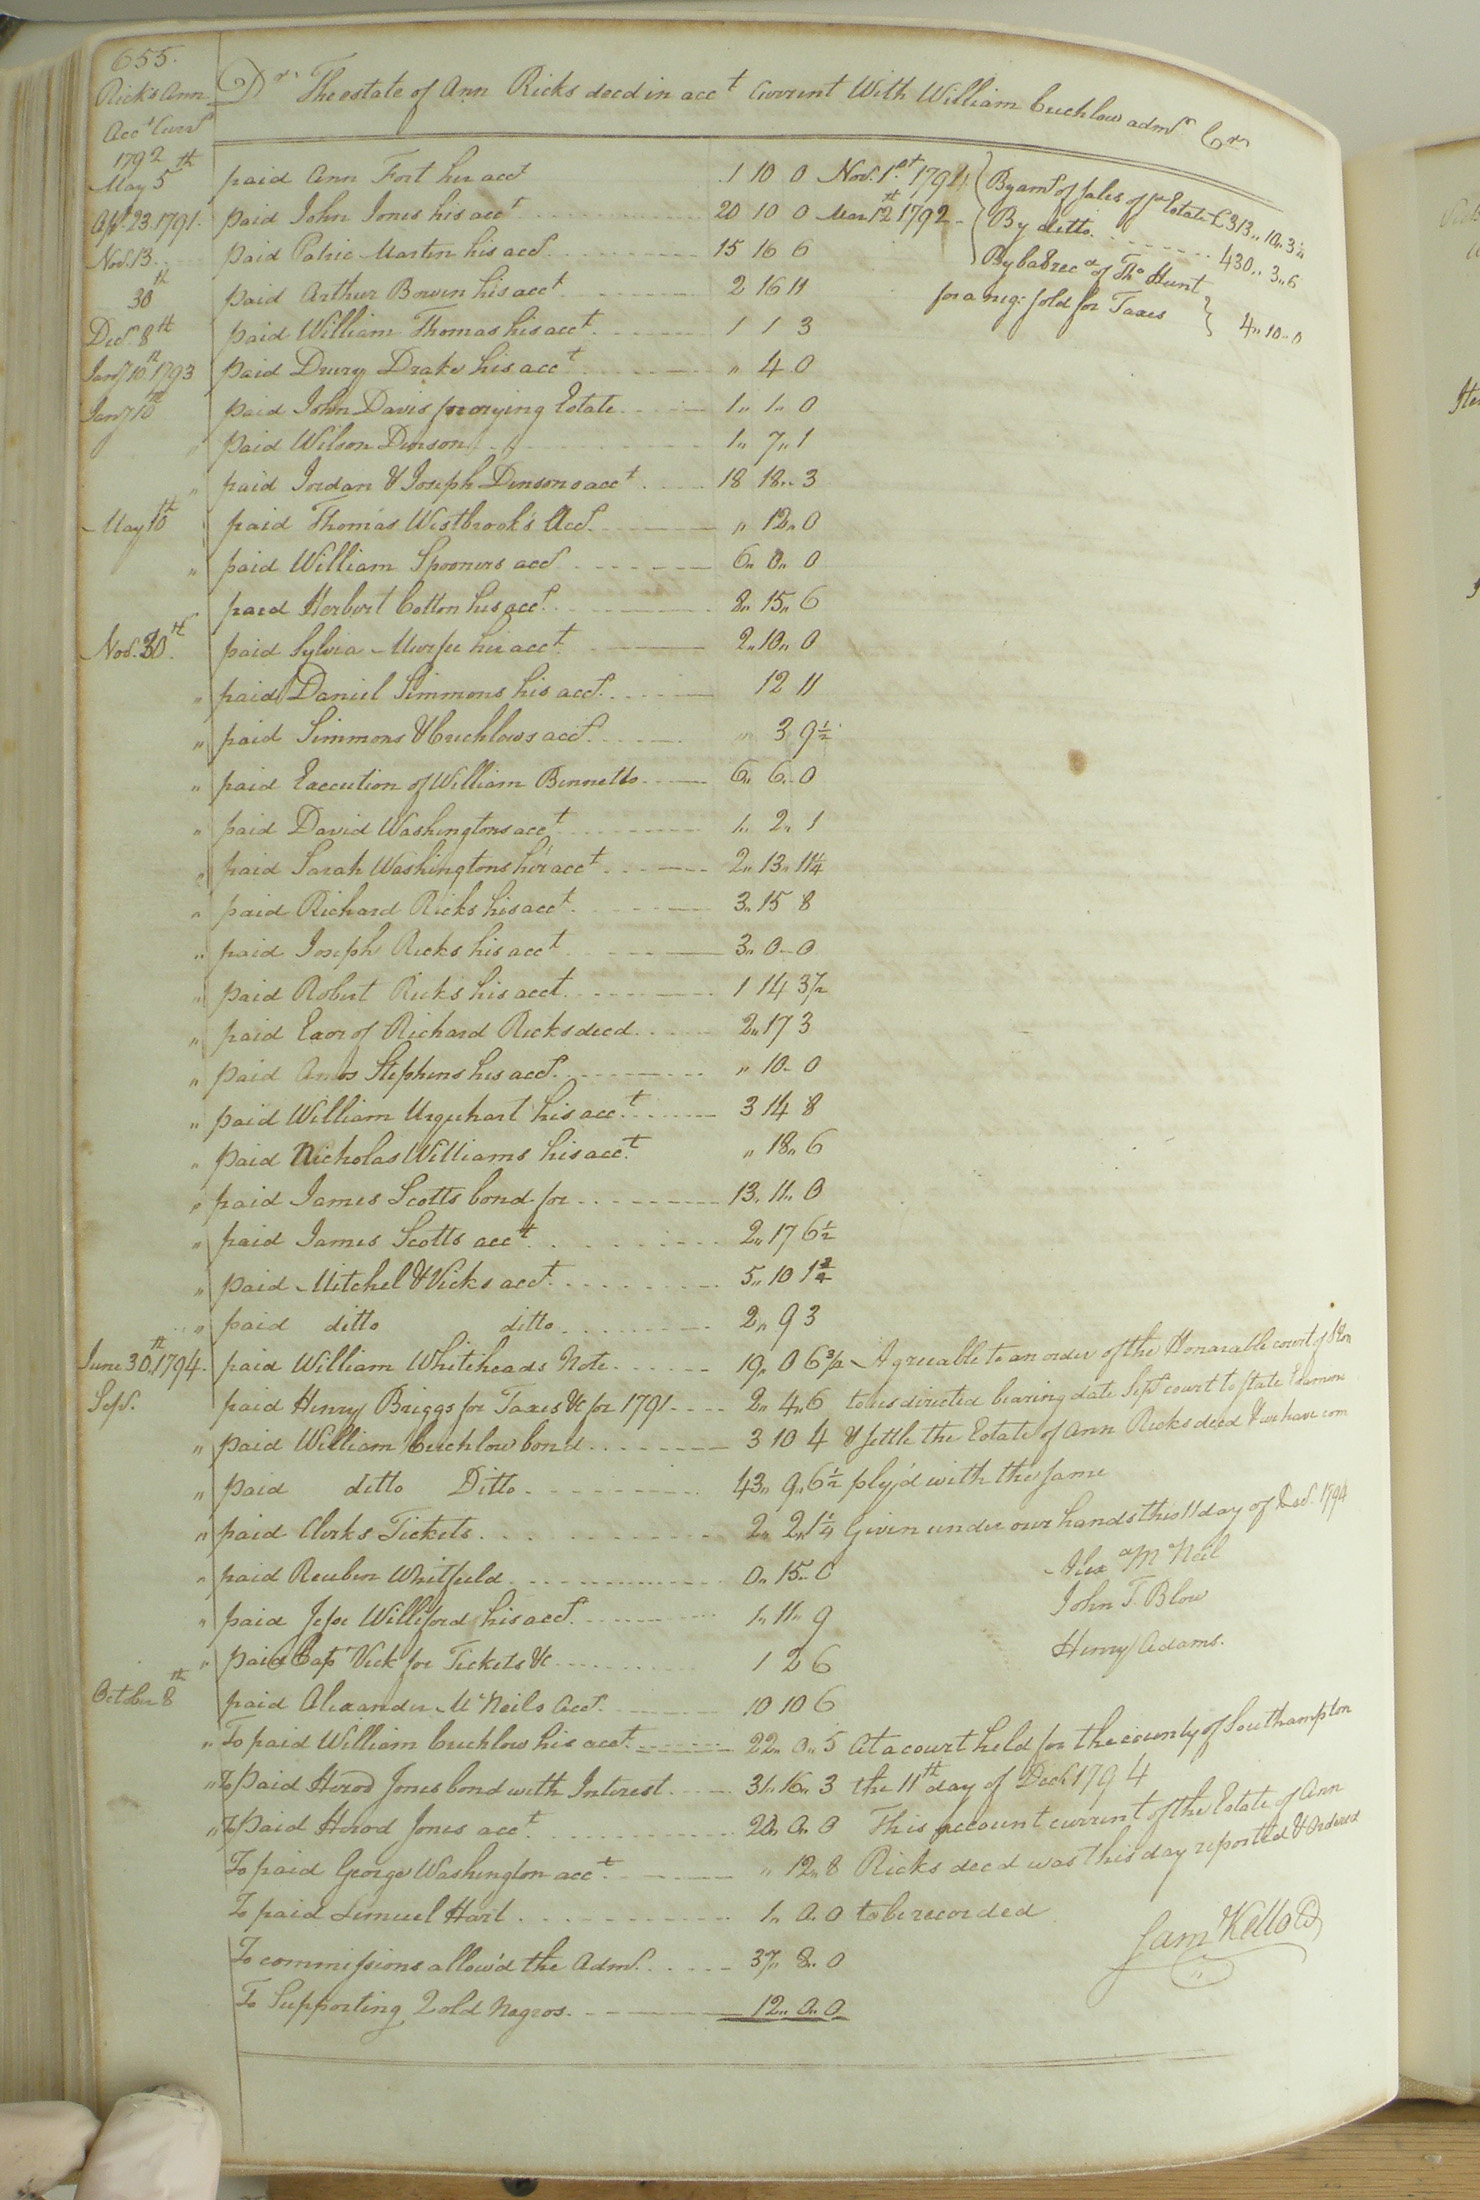 655.
Ricks Ann
Acct Currt
Dr. The estate of Ann Ricks decd in acct Current With William Cuchlow admr Cr
1792
May 5th paid Ann Fort her acct 1 10 0 Nov. 1st 1794 By amt of sales of pr Estate £313,, 10,, 3 1/4
Apl. 23. 1791. paid John Jones his acct 20 10 0 Mar 12th 1792 By ditto 430,, 3,, 6
Nov. 13 paid Patric Martin his acct 15 16 6 By bal recd of Thos Hunt
30th paid Arthur Bowen his acct 2 16 11 for a neg: sold for Taxes 4,, 10,, 0
Decr. 8th paid William Thomas his acct 1 1 3
Jany 10th 1793 paid Drury Drake his acct ,, 4 0
Jany 10th paid John Davis proxying Estate 1,, 1,, 0
,, paid Wilson Denson 1,, 7,, 1
,, paid Jordan & Joseph Densons acct 18 18,, 3
May 10th paid Thomas Westbrook's Acct. ,, 12,, 0
,, paid William Spooners acct 6,, 0,, 0
paid Herbert Cotton his acct. 8,, 15,, 6
Nov. 30th paid Sylvia Murfee her acct 2,, 10,, 0
,, paid Daniel Simmons his acct. 12 11
,, paid Simmons & Cuchlows acct. ,, 3 9 1/2
,, paid Execution of William Bennetts 6,, 6,, 0
,, paid David Washingtons acct 1,, 2,, 1
,, paid Sarah Washingtons her acct 2,, 13,, 11 1/4
,, paid Richard Ricks his acct. 3,, 15 8
,, paid Joseph Ricks his acct 3,, 0 - 0
,, paid Robert Ricks his acct. 1 14 3 1/2
,, paid Exor of Richard Ricks decd. 2,, 17 3
,, paid Amos Stephens his acct. ,, 10 - 0
,, paid William Urquhart his acct. 3 14 8
,, paid Nicholas Williams his acct. ,, 18,, 6
,, paid James Scotts bond for 13,, 11,, 0
,, paid James Scotts acct 2,, 17 6 1/2
,, paid Mitchel & Vicks acct. 5,, 10 1 3/4
,, paid ditto ditto 2,, 9 3
June 30th. 1794. paid William Whiteheads Note. 19,, 0 6 3/4 Agreeable to an order of the Honarable court of S'ton
Sept. paid Henry Briggs for Taxes &c for 1791. 2,, 4,, 6 to us directed bearing date Sept court to state Examine
,, paid William Cuchlow bond 3 10 4 & settle the Estate of Ann Ricks decd & we have com
,, paid ditto Ditto 43,, 9,, 6 1/2 ply'd with the same
,, paid Clerks Tickets. 2,, 2,, 1 1/4 Given under our hands this 11 day of Decr. 1794
,, paid Reuben Whitfield. 0,, 15,, 0 Alexa McNeil
,, paid Jesse Williford his acct. 1,, 11,, 9 John T. Blow
,, paid Cap Vick for Tickets &c 1 2 6 Henry Adams.
October 8th paid Alexander McNeils Acct. 10 10 6
,, To paid William Cuchlow his acct. 22,, 0,, 5 At a court held for the county of Southampton
,, To Paid Herod Jones bond with Interest 31,, 16,, 3 the 11th day of Decr. 1794
,, To Paid Herod Jones acct. 20,, 0,, 0 This account current of the Estate of Ann
To paid George Washington acct. ,, 12,, 8 Ricks decd was this day reported & Ordered
To paid Lemuel Hart 1,, 0,, 0 to be recorded
Sam Kello
To commissions allow'd the Admr. 37,, 8,, 0
To Supporting 2 old Negros. 12,, 0,, 0